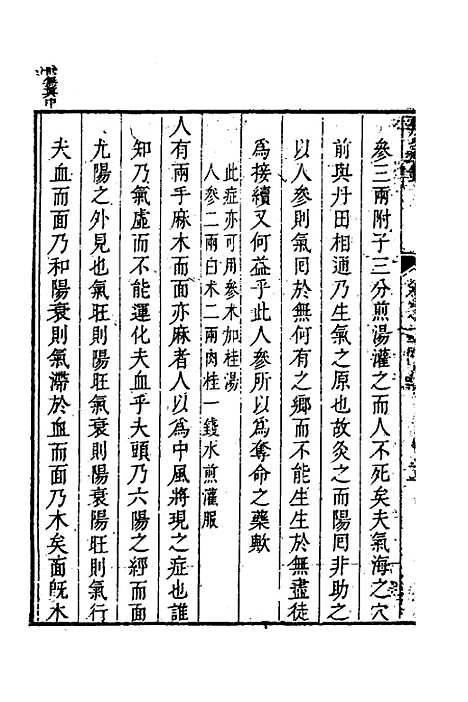 參三兩附子三分煎湯灌之而人不死矣夫氣海之穴
前與丹田相通乃生氣之原也故灸之而陽囘非助之
以人參則氣囘於無何有之鄉而不能生生於無盡徒
爲接續又何益乎此人參所以爲奪命之藥歟
此症亦可用參朮加桂湯
人參二兩白朮二兩肉桂一錢水煎灌服
人有兩手麻木而面亦麻者人以爲中風將現之症也誰
知乃氣虛而不能運化夫血乎夫頭乃六陽之經而面
尤陽之外見也氣旺則陽旺氣衰則陽衰陽旺則氣行
夫血而面乃和陽衰則氣滯於血而面乃木矣面旣木